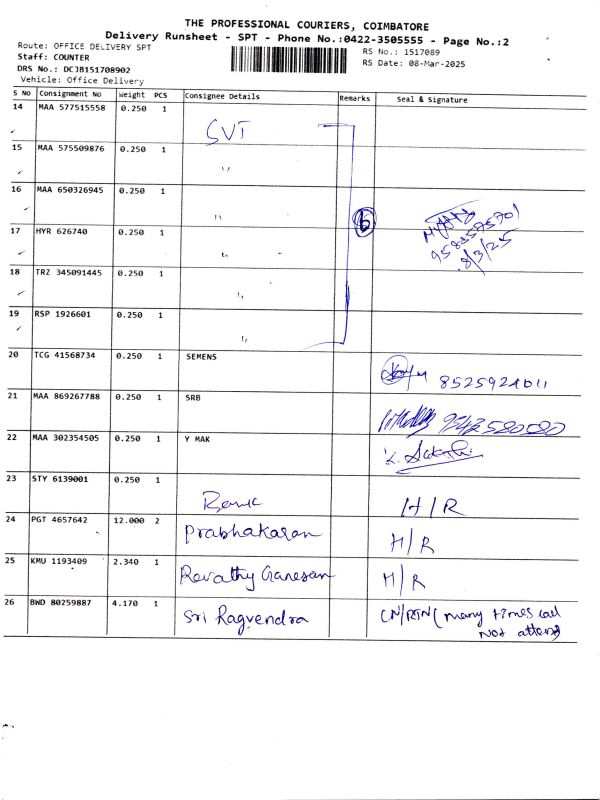 THE PROFESSIONAL COURIERS, COIMBATORE
Delivery Runsheet - SPT - Phone No.:0422-3505555 - Page No.:2
Route: OFFICE DELIVERY SPT
Staff: COUNTER
DRS No.: DCJB151708902
Vehicle: Office Delivery
RS No.: 1517089
RS Date: 08-Mar-2025
S No Consignment No Weight PCS Consignee Details Remarks Seal & Signature
14 MAA 577515558 0.250 1 SVT
15 MAA 575509876 0.250 1 "
16 MAA 650326945 0.250 1 "
6
9585757701
8/3/25
17 HYR 626740 0.250 1 "
18 TRZ 345091445 0.250 1 "
19 RSP 1926601 0.250 1 "
20 TCG 41568734 0.250 1 SEMENS 8525924011
21 MAA 869267788 0.250 1 SRB 9543580580
22 MAA 302354505 0.250 1 Y MAK
23 STY 6139001 0.250 1 H/R
24 PGT 4657642 12.000 2 Prabhakaran H/R
25 KMU 1193409 2.340 1 Revathy Ganesan H/R
26 BWD 80259887 4.170 1 Sri Ragvendra CN/RTN (many times call
Not attend